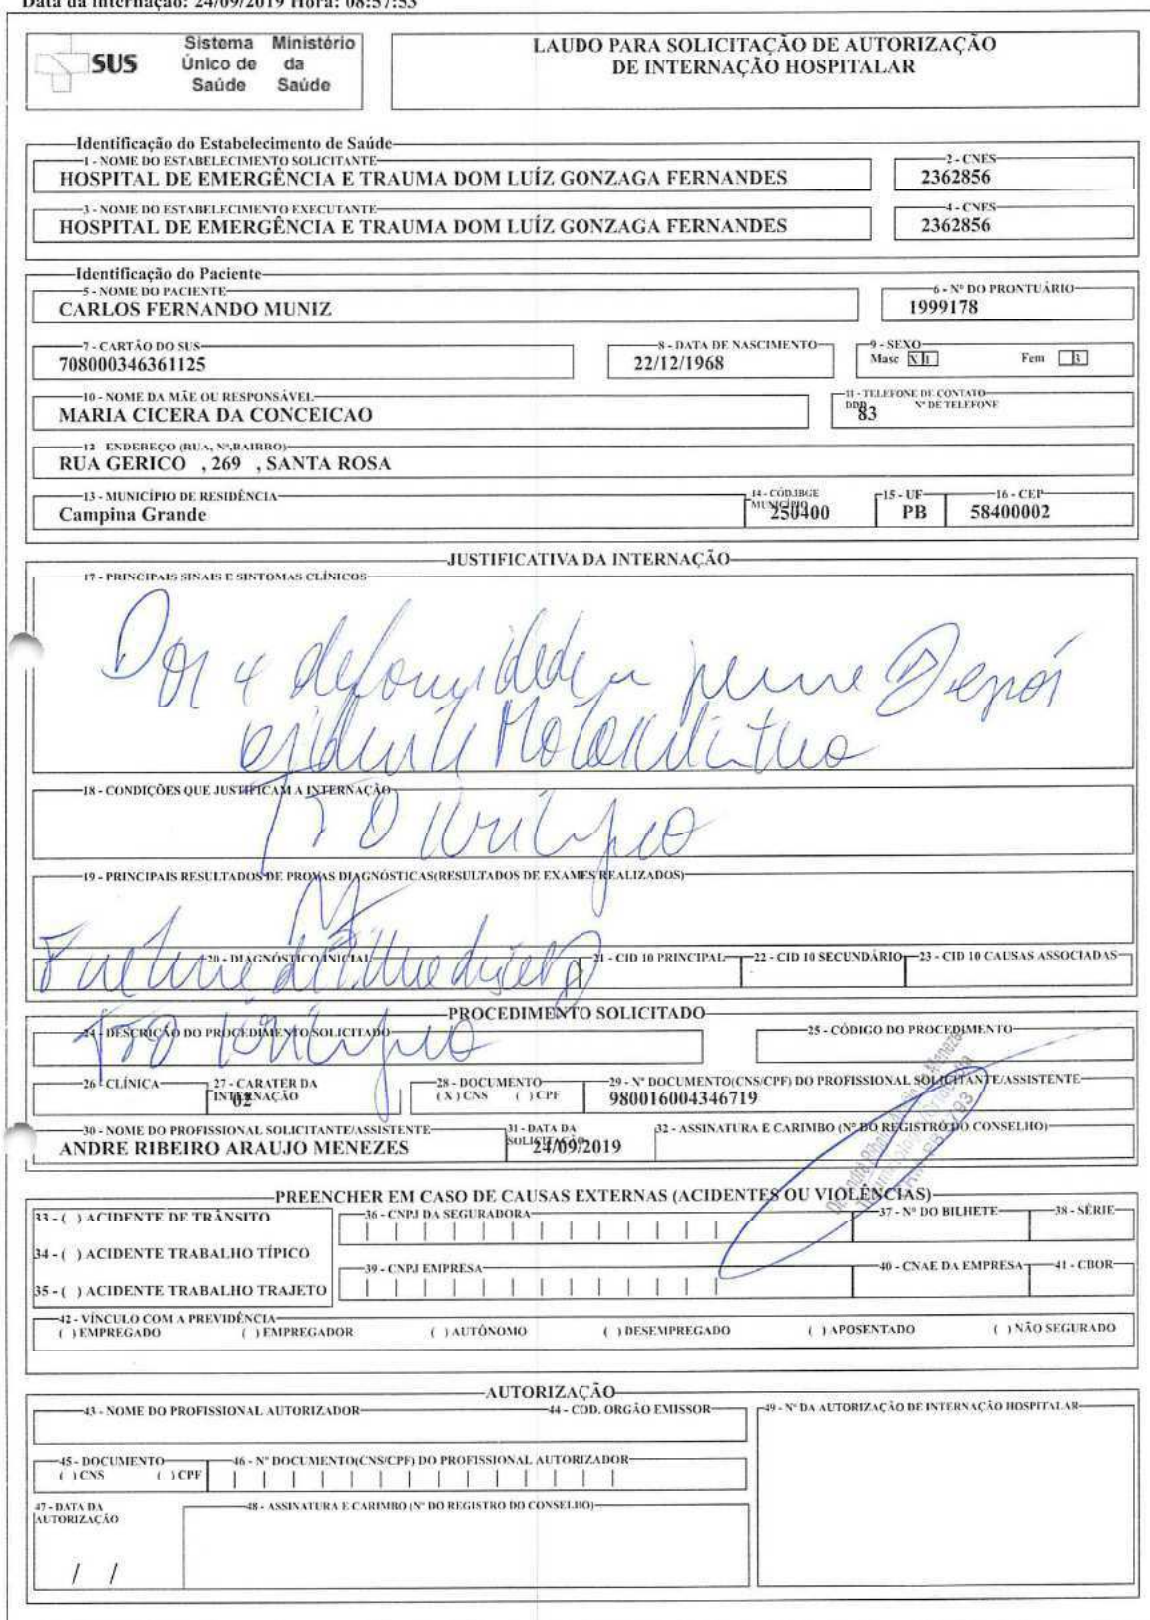 Data da internação: 24/09/2019 Hora: 08:57:53
SUS
Sistema Único de Saúde
Ministério da Saúde
LAUDO PARA SOLICITAÇÃO DE AUTORIZAÇÃO
DE INTERNAÇÃO HOSPITALAR
Identificação do Estabelecimento de Saúde
1 - NOME DO ESTABELECIMENTO SOLICITANTE
HOSPITAL DE EMERGÊNCIA E TRAUMA DOM LUÍZ GONZAGA FERNANDES
2 - CNES
2362856
3 - NOME DO ESTABELECIMENTO EXECUTANTE
HOSPITAL DE EMERGÊNCIA E TRAUMA DOM LUÍZ GONZAGA FERNANDES
4 - CNES
2362856
Identificação do Paciente
5 - NOME DO PACIENTE
CARLOS FERNANDO MUNIZ
6 - Nº DO PRONTUÁRIO
1999178
7 - CARTÃO DO SUS
708000346361125
8 - DATA DE NASCIMENTO
22/12/1968
9 - SEXO
Masc X 1 Fem 3
10 - NOME DA MÃE OU RESPONSÁVEL
MARIA CICERA DA CONCEICAO
11 - TELEFONE DE CONTATO
DDD Nº DE TELEFONE
83
12 - ENDEREÇO (RUA, Nº,BAIRRO)
RUA GERICO , 269 , SANTA ROSA
13 - MUNICÍPIO DE RESIDÊNCIA
Campina Grande
14 - CÓD.IBGE MUNICÍPIO
250400
15 - UF
PB
16 - CEP
58400002
JUSTIFICATIVA DA INTERNAÇÃO
17 - PRINCIPAIS SINAIS E SINTOMAS CLÍNICOS
Dor e deformidade perna Depós
acidente
18 - CONDIÇÕES QUE JUSTIFICAM A INTERNAÇÃO
TTO Cirúrgico
19 - PRINCIPAIS RESULTADOS DE PROVAS DIAGNÓSTICAS(RESULTADOS DE EXAMES REALIZADOS)
20 - DIAGNÓSTICO INICIAL
Fratura
21 - CID 10 PRINCIPAL
22 - CID 10 SECUNDÁRIO
23 - CID 10 CAUSAS ASSOCIADAS
PROCEDIMENTO SOLICITADO
24 - DESCRIÇÃO DO PROCEDIMENTO SOLICITADO
TTO Cirúrgico
25 - CÓDIGO DO PROCEDIMENTO
26 - CLÍNICA
27 - CARATER DA INTERNAÇÃO
02
28 - DOCUMENTO
( X ) CNS ( ) CPF
29 - Nº DOCUMENTO(CNS/CPF) DO PROFISSIONAL SOLICITANTE/ASSISTENTE
980016004346719
30 - NOME DO PROFISSIONAL SOLICITANTE/ASSISTENTE
ANDRE RIBEIRO ARAUJO MENEZES
31 - DATA DA SOLICITAÇÃO
24/09/2019
32 - ASSINATURA E CARIMBO (Nº DO REGISTRO DO CONSELHO)
PREENCHER EM CASO DE CAUSAS EXTERNAS (ACIDENTES OU VIOLÊNCIAS)
33 - ( ) ACIDENTE DE TRÂNSITO
34 - ( ) ACIDENTE TRABALHO TÍPICO
35 - ( ) ACIDENTE TRABALHO TRAJETO
36 - CNPJ DA SEGURADORA
37 - Nº DO BILHETE
38 - SÉRIE
39 - CNPJ EMPRESA
40 - CNAE DA EMPRESA
41 - CBOR
42 - VÍNCULO COM A PREVIDÊNCIA
( ) EMPREGADO ( ) EMPREGADOR ( ) AUTÔNOMO ( ) DESEMPREGADO ( ) APOSENTADO ( ) NÃO SEGURADO
AUTORIZAÇÃO
43 - NOME DO PROFISSIONAL AUTORIZADOR
44 - COD. ORGÃO EMISSOR
49 - Nº DA AUTORIZAÇÃO DE INTERNAÇÃO HOSPITALAR
45 - DOCUMENTO
( ) CNS ( ) CPF
46 - Nº DOCUMENTO(CNS/CPF) DO PROFISSIONAL AUTORIZADOR
47 - DATA DA AUTORIZAÇÃO
/ /
48 - ASSINATURA E CARIMBO (Nº DO REGISTRO DO CONSELHO)